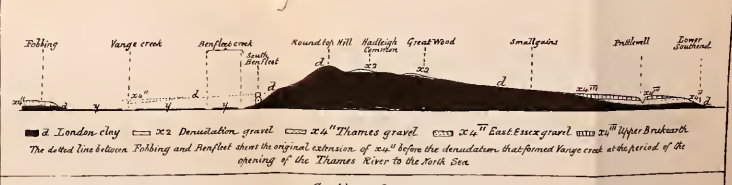 Fobbing
Vange creek
Benfleet creek
South Benfleet
Roundtop Hill
Hadleigh Common
Great Wood
Smallgains
Prittlewell
Lower Southend
x4"
d
y
x4"
d
y
d
d
x2
x2
d
x4'''
x4'''
d
d London clay x2 Denudation gravel x4" Thames gravel x4'' East Essex gravel x4''' Upper Brickearth
The dotted line between Fobbing and Benfleet shews the original extension of x4" before the denudation that formed Vange creek at the period of the
opening of the Thames River to the North Sea